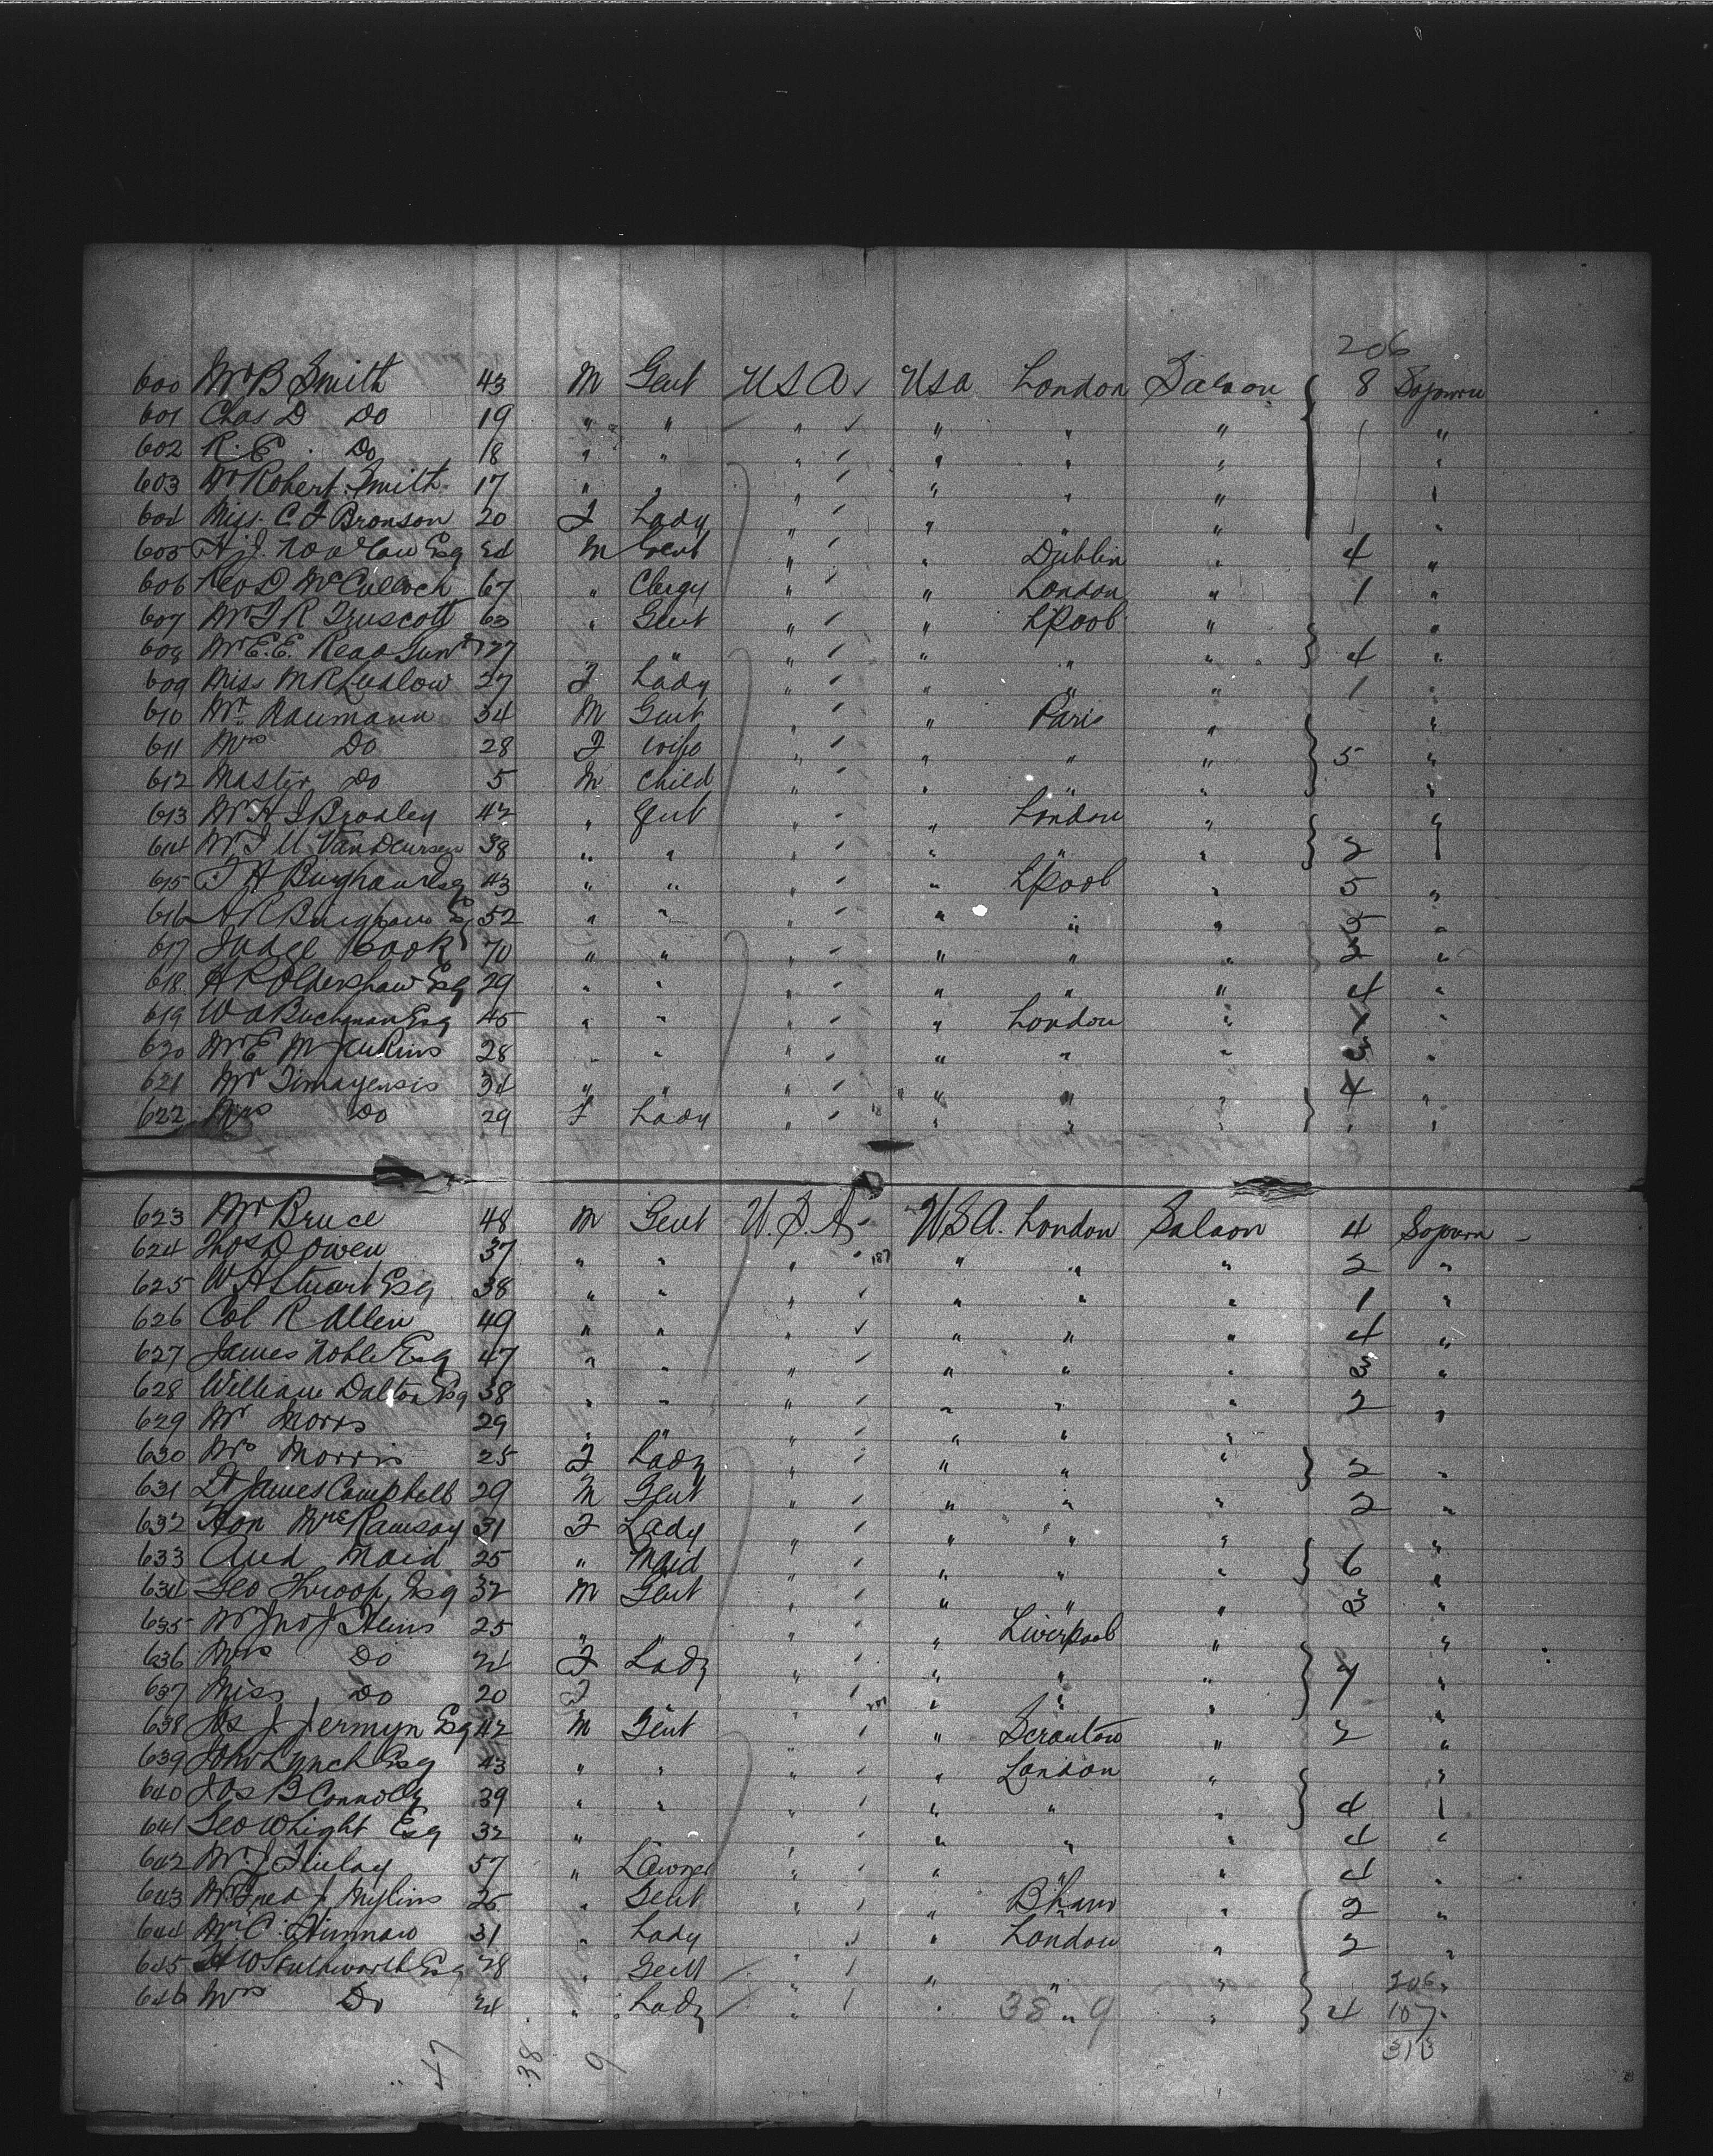 206
600 Mr B Smith 43 M Gent U S A USA London Saloon 8 Sojourn
601 Chas D Do 19 " " " " " " "
602 R. E. Do 18 " " " " " " "
603 Mr Robert Smith 17 " " " " " "
604 Miss. C. F Bronson 20 F Lady " " " " "
605 H. J. Esq M Gent " " Dublin " 4 "
606 Revd McCulloch 67 " Clergy " " London " 1 "
607 Mr F R Truscott 63 " Gent " " LPool " "
608 Mr E. E. Read 27 " " " " " 4 "
609 Miss M R Ludlow 27 F Lady " " " " 1 "
610 Mr Naumann 34 M Gent " " Paris " "
611 Mrs Do 28 F wife " " " " 5 "
612 Master Do 5 M Child " " " " "
613 Mr H S Bradley 42 " Gent " " London " "
614 Mr J U VanDeursen 38 " " " " " " 2
615 T H Bingham Esq 43 " " " " LPool " 5 "
616 A R Bingham Esq 52 " " " " " " 5 "
617 Judge Cook 70 " " " " " " 2 "
618 H R Oldershaw Esq 29 " " " " " " 4 "
619 W A Buchman Esq 45 " " " " London " 1 "
620 Mr E M Jenkins 28 " " " " " " 3 "
621 Mr Timayensis 34 " " " " " " 4 "
622 Mrs Do 29 F Lady " " " " " "
623 Mr Bruce 48 M Gent U. S. A. USA. London Saloon 4 Sojourn
624 Thos D Owen 37 " " " " " " 2 "
625 W H Stuart Esq 38 " " " " " " 1 "
626 Col R Allen 49 " " " " " " 4 "
627 James Noble Esq 47 " " " " " " 3 "
628 William Dalton Esq 38 " " " " " " 2 "
629 Mr Morris 29 " " " " " "
630 Mrs Morris 25 F Lady " " " " 2 "
631 Dr James Campbell 29 M Gent " " " " 2 "
632 Hon Mrs Ramsay 31 F Lady " " " " "
633 and Maid 25 " Maid " " " " 6 "
634 Geo Throop, Esq 32 M Gent " " " " 3 "
635 Mr Jno J 25 " " " " Liverpool " "
636 Mrs Do 24 F Lady " " " " 7 "
637 Miss Do 20 F " " " " "
638 Jos J Jermyn Esq 42 M Gent " " Scranton " 2 "
639 John Lynch Esq 43 " " " " London " "
640 Jos B Connolly 39 " " " " " " 4
641 Geo W Light Esq 32 " " " " " 4 "
642 Mr. J Finlay 57 " Lawyer " " " " 4 "
643 Mr Fred J Mylins 25 " Gent " " B'ham " 2 "
644 Mr C. Hinman 31 " Lady " " London " 2 "
645 H W Southworth Esq 28 " Gent " " " " 206
646 Mrs Do 24 " Lady " " 38 " 9 " 4 107
313
47 38 9